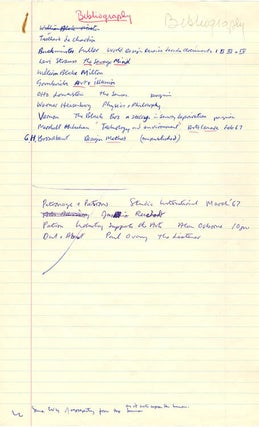 Bibliography
Bibliography
Teilhard de Chardin
Buckminster Fuller World Design Science Decade documents
Levi Strauss The Savage Mind
William Blake Milton
Gombrich Art & Illusion
Otto Lowenstein The Senses penguin
Werner Heisenberg Physics & Philosophy
Vernon The Black Box a study in sensory deprivation penguin
Marshall McLuhan Technology and environment Arts Canada Feb 67
G.H. Broadbent Design Method (unpublished)
Patronage & Patrons Studio International March 67
Patron Industry Supports the Arts Alan Osborne 10pm
Out & About Paul Overy The Listener